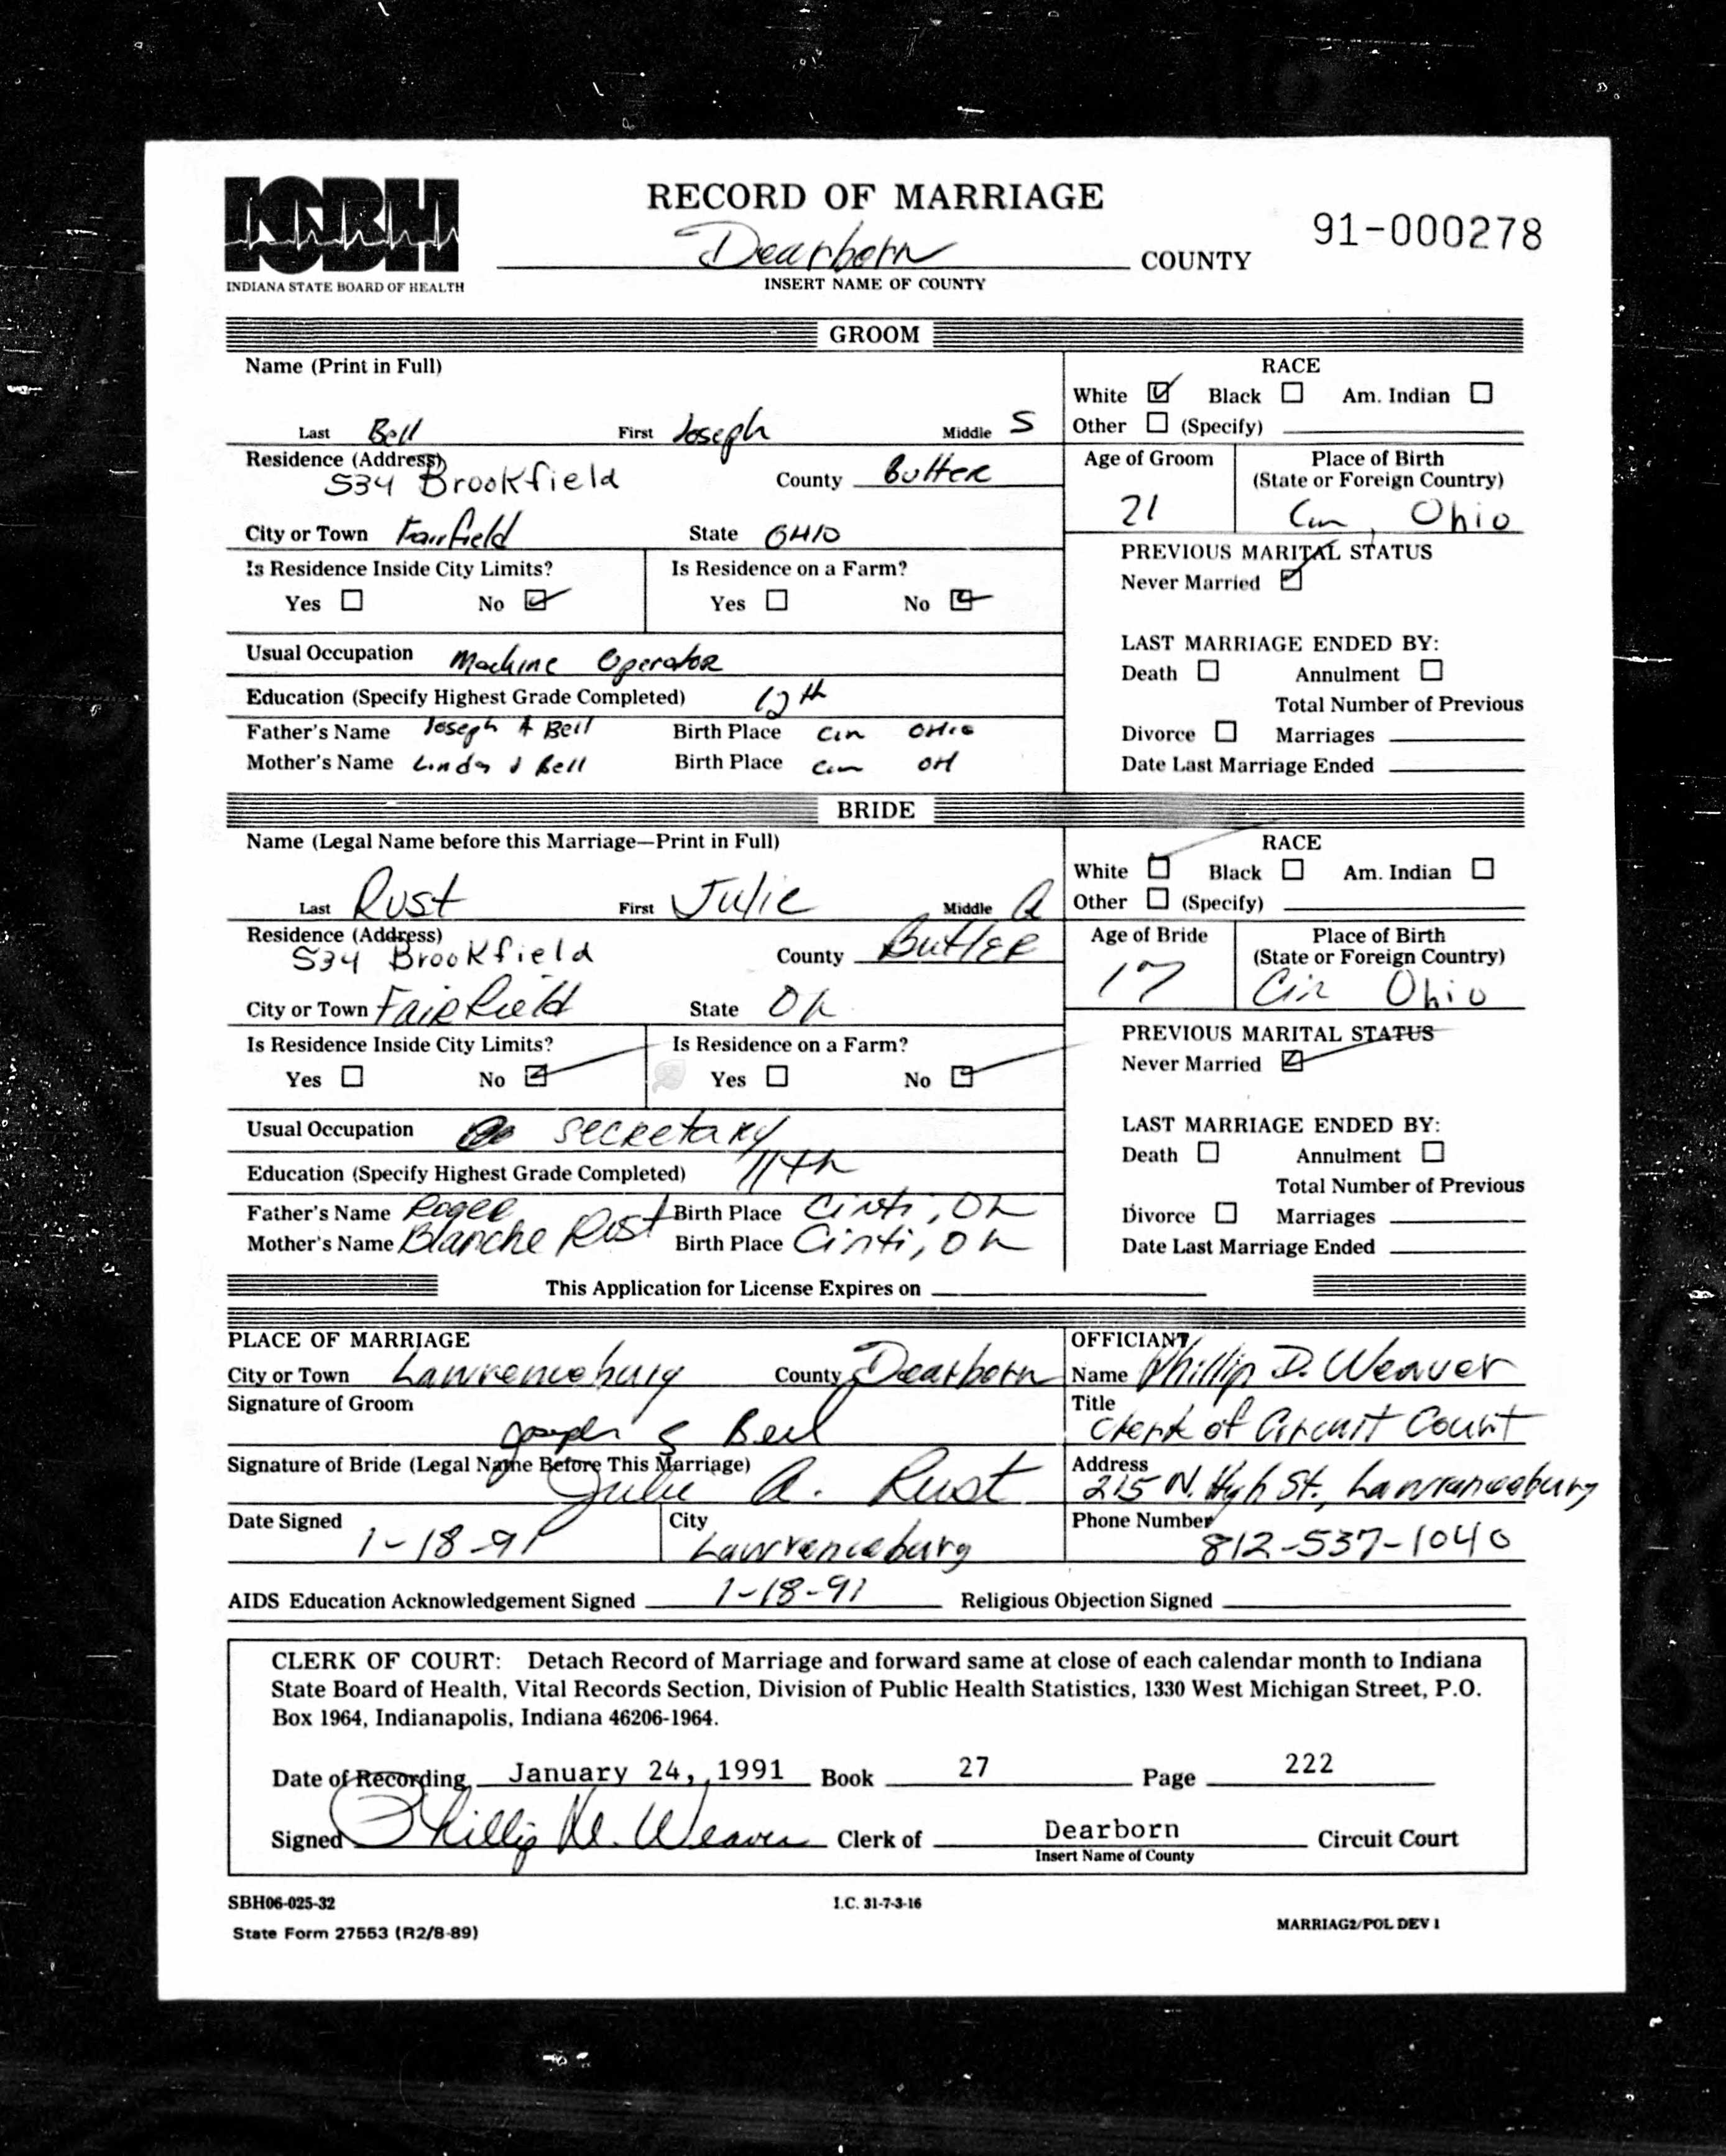 ISBH
INDIANA STATE BOARD OF HEALTH
RECORD OF MARRIAGE
91-000278
Dearborn COUNTY
INSERT NAME OF COUNTY
GROOM
Name (Print in Full)
Last Bell First Joseph Middle S
RACE
White Black Am. Indian
Other (Specify)
Residence (Address) 534 Brookfield County Butler
Age of Groom 21
Place of Birth
(State or Foreign Country)
Cin, Ohio
City or Town Fairfield State OHIO
Is Residence Inside City Limits? Is Residence on a Farm?
Yes No Yes No
PREVIOUS MARITAL STATUS
Never Married
Usual Occupation Machine Operator
Education (Specify Highest Grade Completed) 12th
Father's Name Joseph A Bell Birth Place Cin OHio
Mother's Name Linda J Bell Birth Place Cin OH
LAST MARRIAGE ENDED BY:
Death Annulment
Total Number of Previous
Divorce Marriages
Date Last Marriage Ended
BRIDE
Name (Legal Name before this Marriage—Print in Full)
Last Rust First Julie Middle A
RACE
White Black Am. Indian
Other (Specify)
Residence (Address) 534 Brookfield County Butler
Age of Bride 17
Place of Birth
(State or Foreign Country)
Cin Ohio
City or Town Fairfield State Oh
Is Residence Inside City Limits? Is Residence on a Farm?
Yes No Yes No
PREVIOUS MARITAL STATUS
Never Married
Usual Occupation secretary
Education (Specify Highest Grade Completed) 11th
Father's Name Roger Birth Place Cinti, Oh
Mother's Name Blanche Rust Birth Place Cinti, Oh
LAST MARRIAGE ENDED BY:
Death Annulment
Total Number of Previous
Divorce Marriages
Date Last Marriage Ended
This Application for License Expires on
PLACE OF MARRIAGE
City or Town Lawrenceburg County Dearborn
Signature of Groom
Joseph S Bell
Signature of Bride (Legal Name Before This Marriage)
Julie A. Rust
Date Signed 1-18-91 City Lawrenceburg
OFFICIANT
Name Phillip D. Weaver
Title
Clerk of Circuit Court
Address
215 N. High St., Lawrenceburg
Phone Number 812-537-1040
AIDS Education Acknowledgement Signed 1-18-91 Religious Objection Signed
CLERK OF COURT: Detach Record of Marriage and forward same at close of each calendar month to Indiana
State Board of Health, Vital Records Section, Division of Public Health Statistics, 1330 West Michigan Street, P.O.
Box 1964, Indianapolis, Indiana 46206-1964.
Date of Recording January 24, 1991 Book 27 Page 222
Signed Phillip W. Weaver Clerk of Dearborn Circuit Court
Insert Name of County
SBH06-025-32 I.C. 31-7-3-16
State Form 27553 (R2/8-89) MARRIAG2/POL DEV 1